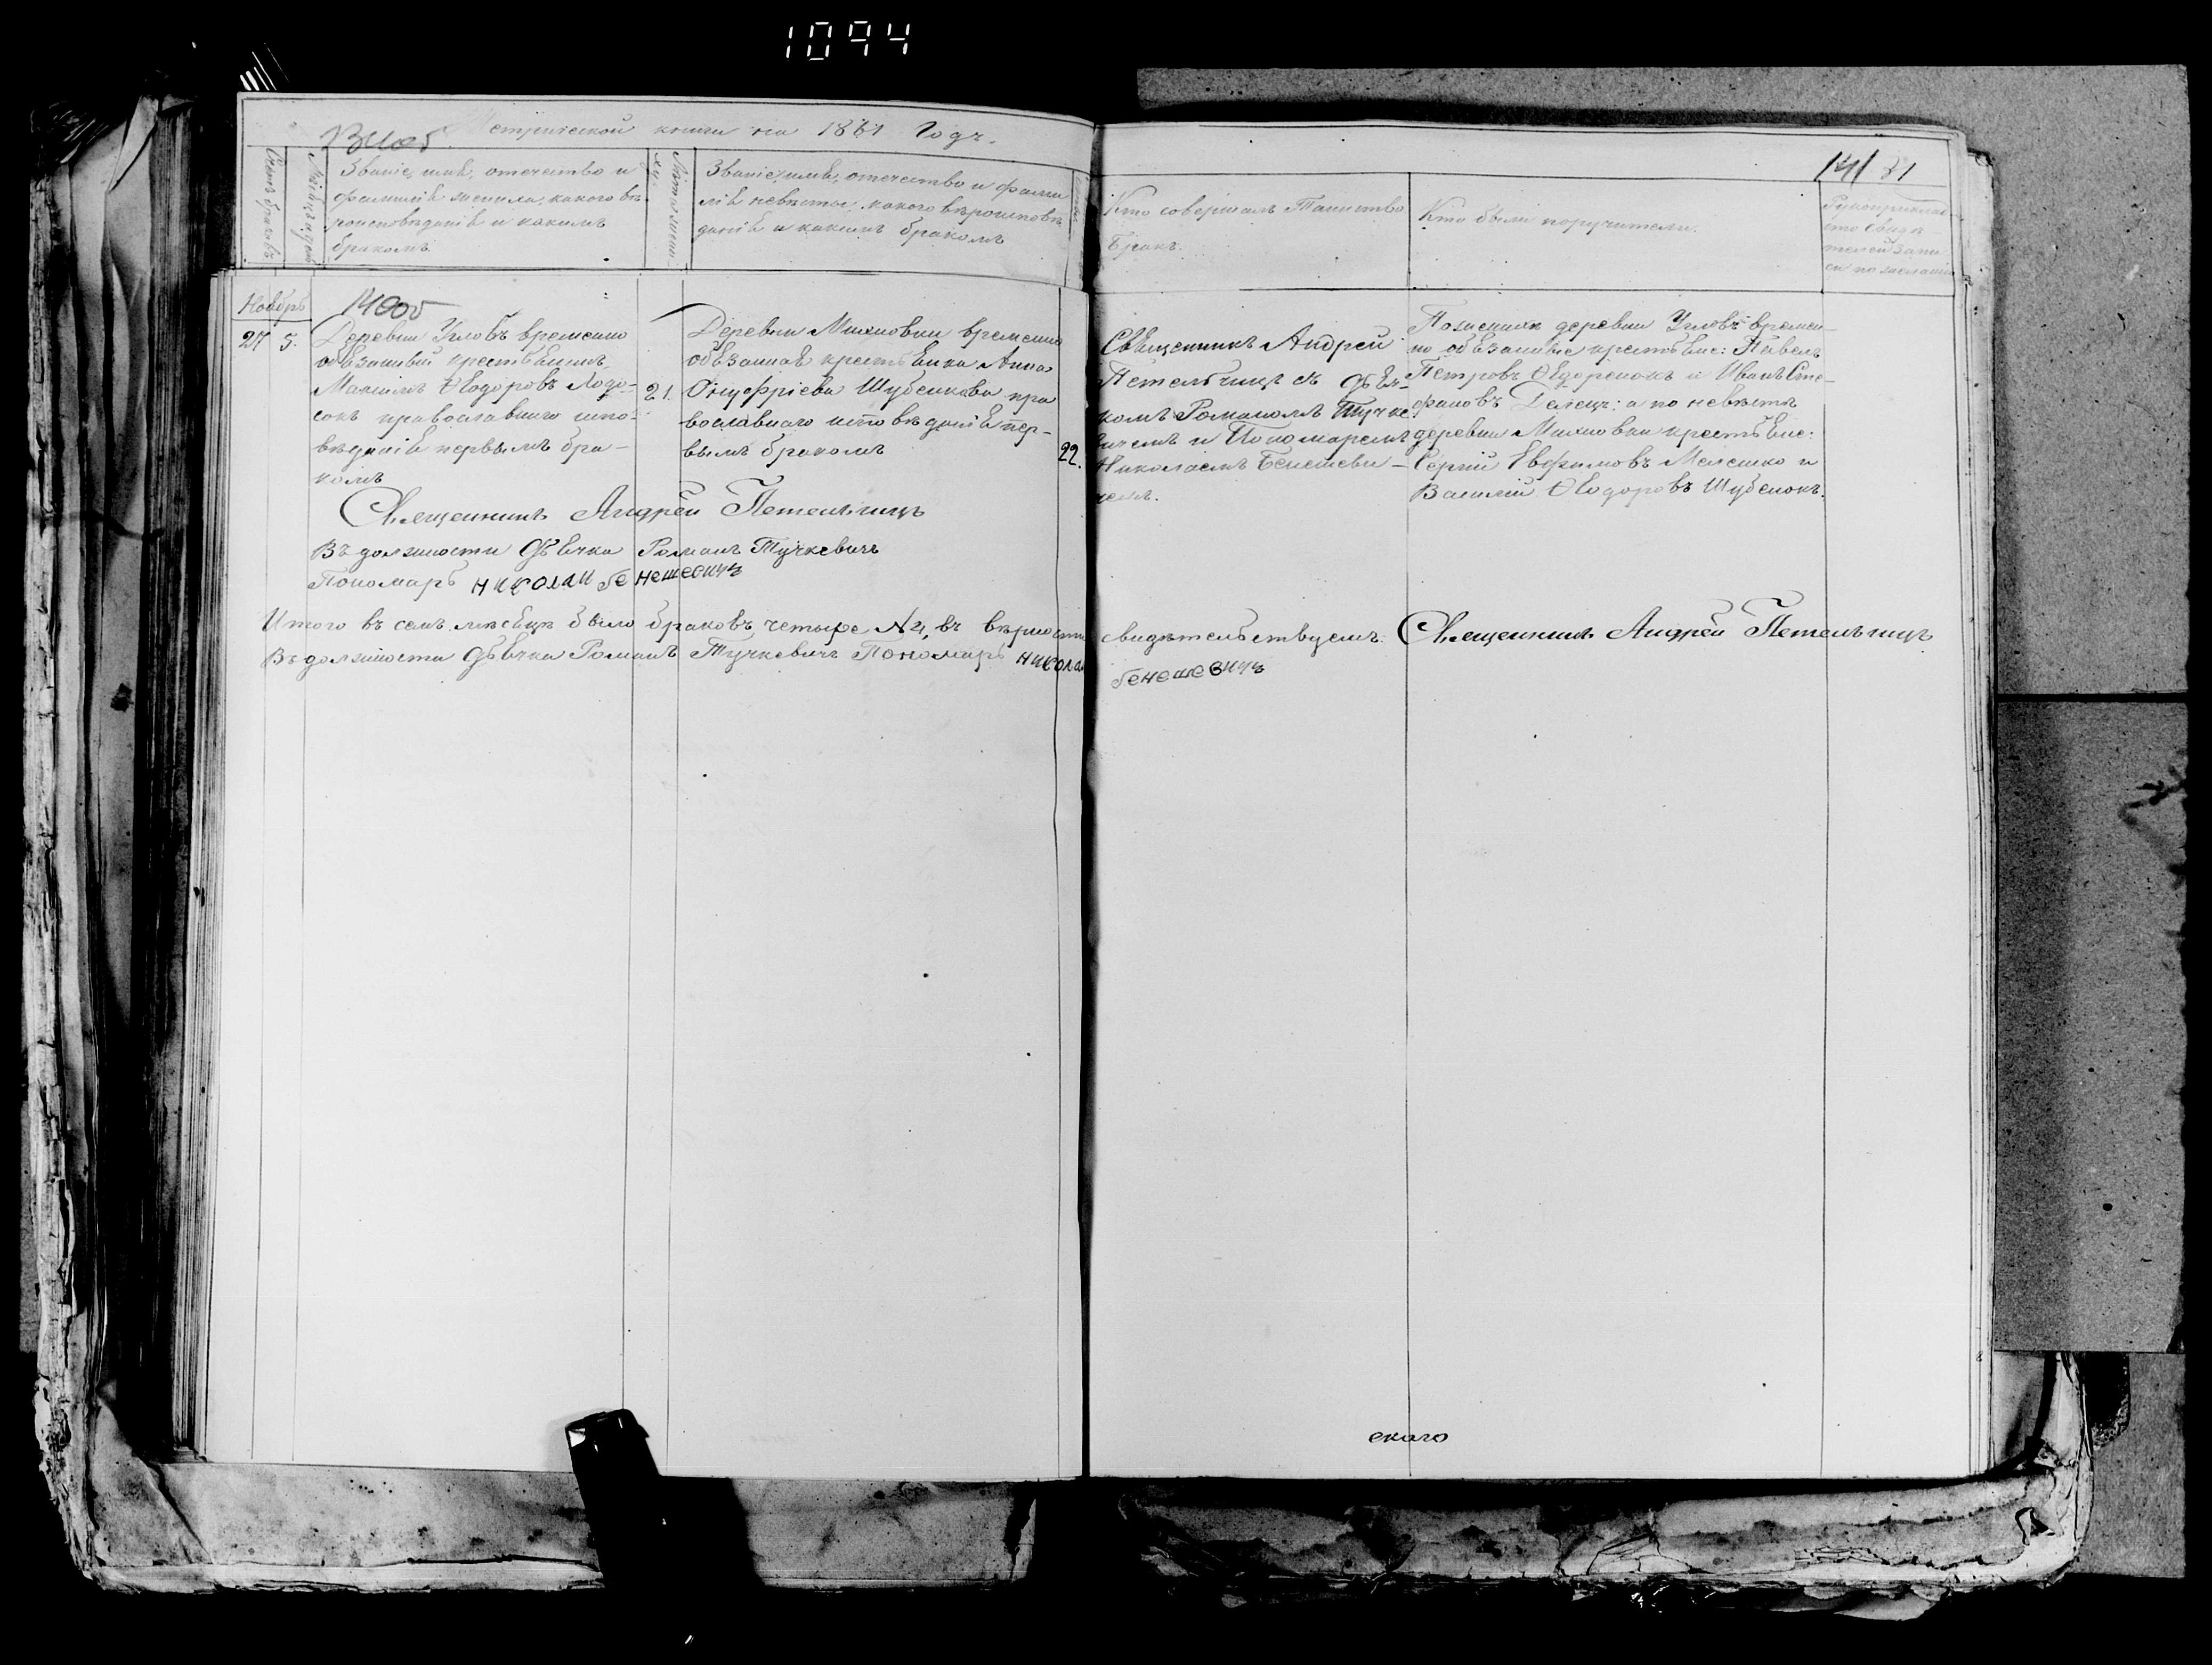 1094
Метрической книги на 1861 Годъ.
141 81
Счетъ браковъ
Мѣсяцъ и день
Званіе, имя, отечество и
фамилія жениха, какого вѣ-
роисповѣданія и какимъ
бракомъ
Лѣта жени-
ха.
Званіе, имя, отечество и фами
лія невѣсты, какого вѣроисповѣ
данія и какимъ бракомъ
Кто совершалъ Таинство
Бракъ.
Кто были поручители.
Рукоприклад-
ство свидѣ-
телей запи-
си по желанію
Ноябрь
27 5.
Деревни Угловъ временно
обязанный крестьянинъ
Максимъ Ѳеодоровъ Лодо-
сокъ православнаго испо-
вѣданія первымъ бра-
комъ
21.
Деревни Михновки временно
обязанная крестьянка Анна
Онуфріева Шубенкова пра
вославнаго исповѣданія пер-
вымъ бракомъ
22.
Священникъ Андрей
Петельчицъ съ Дья-
комъ Романомъ Тучке
вичемъ и Пономаремъ
Николаемъ Бенешеви-
чемъ.
По женихѣ деревни Угловъ времен-
но обязанные крестьяне: Павелъ
Петровъ Ѳедоренокъ и Иванъ Сте-
фановъ Далецъ; а по невѣстѣ
деревни Михновки крестьяне:
Сергій Евфимовъ Мелешко и
Василій Ѳеодоровъ Шубенокъ.
Священникъ Андрей Петельчицъ
Въ должности Дьячка Романъ Тучкевичъ
Пономарь Николай Бенешевичъ
Итого въ семъ мѣсяцѣ было браковъ четыре №4, въ вѣрности свидѣтельствуемъ: Священникъ Андрей Петельчицъ
Въ должности Дьячка Романъ Тучкевичъ Пономарь Николай
Бенешевичъ
скаго